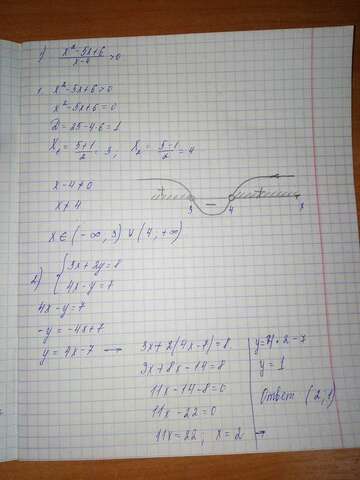 1) x²-5x+6 / x-4 >0
1. x²-5x+6>0
x²-5x+6=0
D=25-4·6=1
x₁=5+1/2=3, x₂=5-1/2=4
x-4≠0
x≠4
+ - +
3 4 x
x∈(-∞,3) ∨ (4,+∞)
2) { 3x+2y=8
4x-y=7
4x-y=7
-y=-4x+7
y=4x-7 → 3x+2(4x-8)=8
3x+8x-14=8
11x-14-8=0
11x-22=0
11x=22; x=2 →
y=4·2-7
y=1
Ответ (2,1)